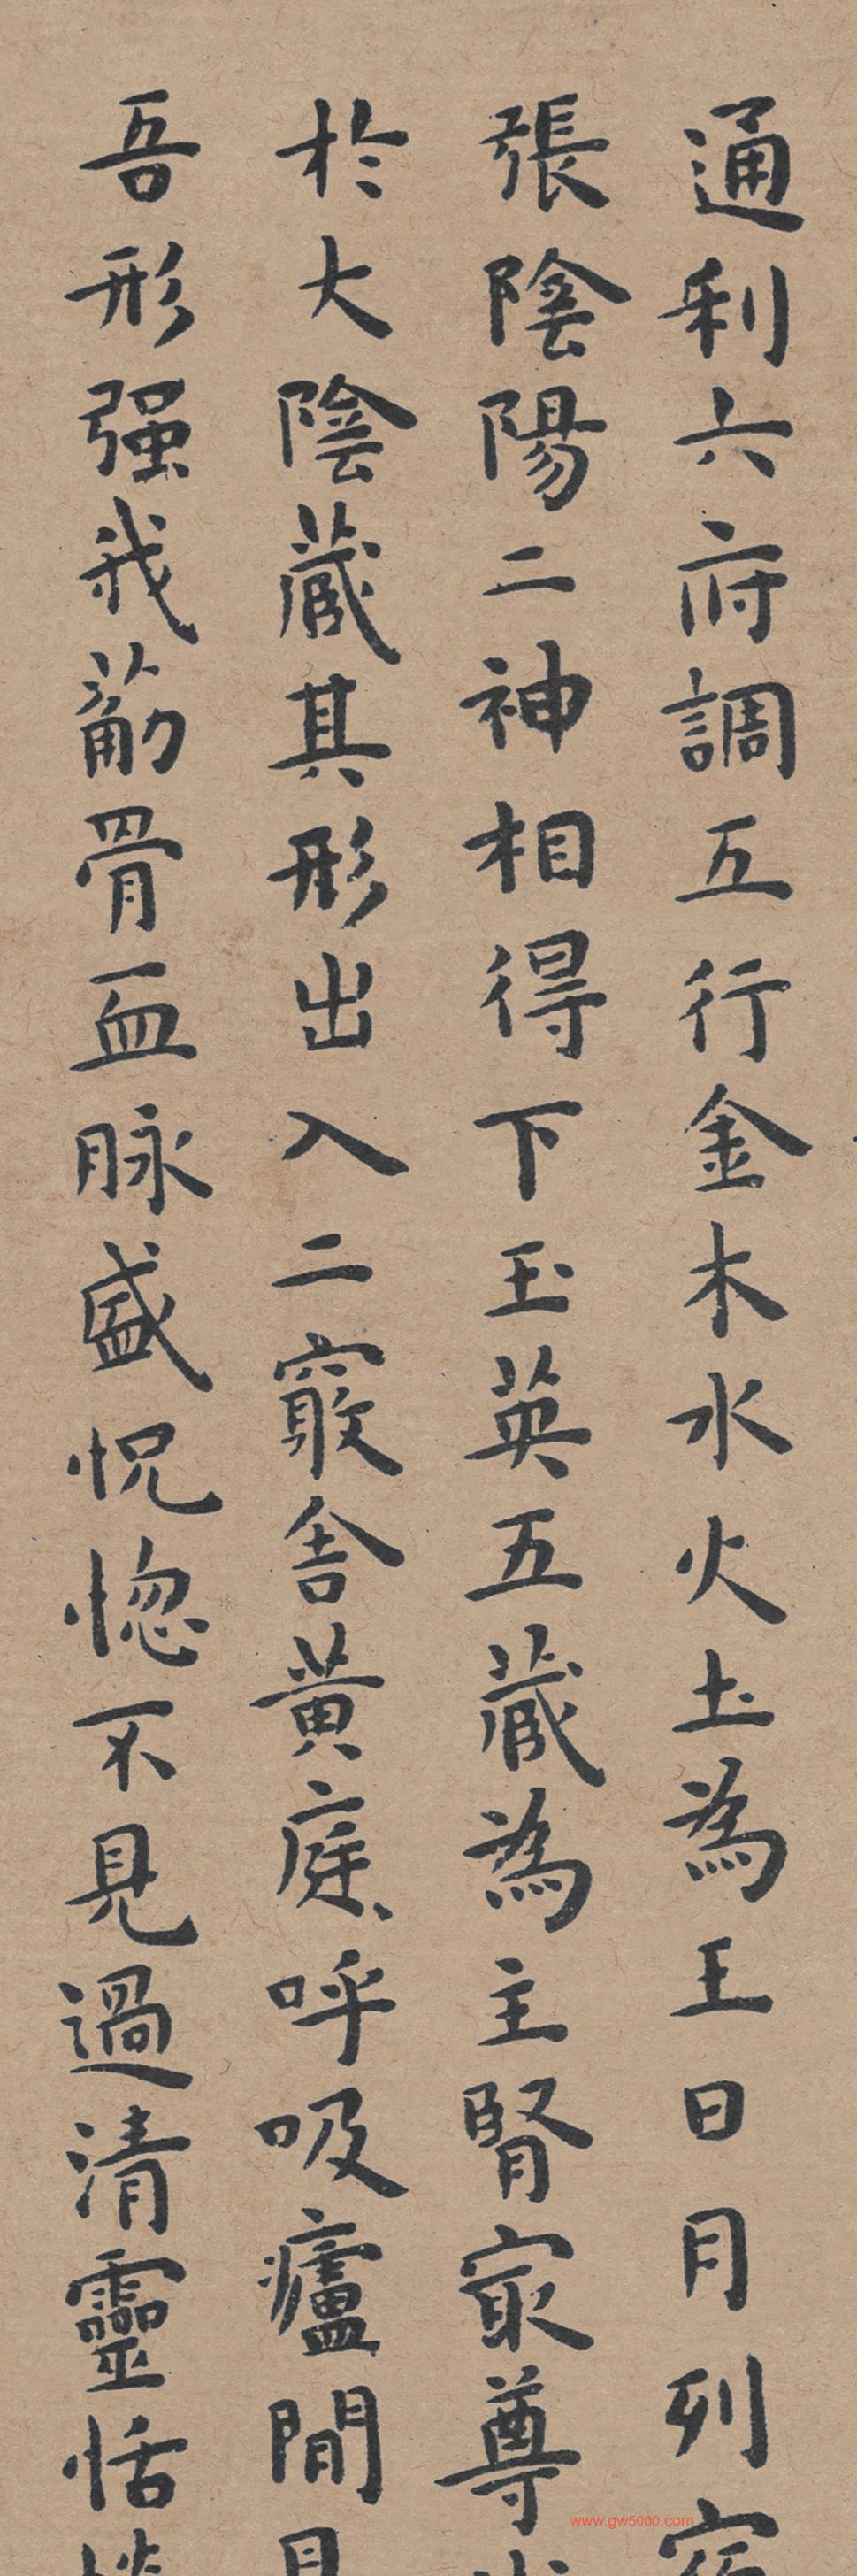 通利六府調五行金木水火土為王日月列宿
張陰陽二神相得下玉英五藏為主腎冣尊
於大陰藏其形出入二竅舍黃庭呼吸廬間見
吾形强我筋骨血脉盛怳惚不見過清靈恬惔
www.gw5000.com